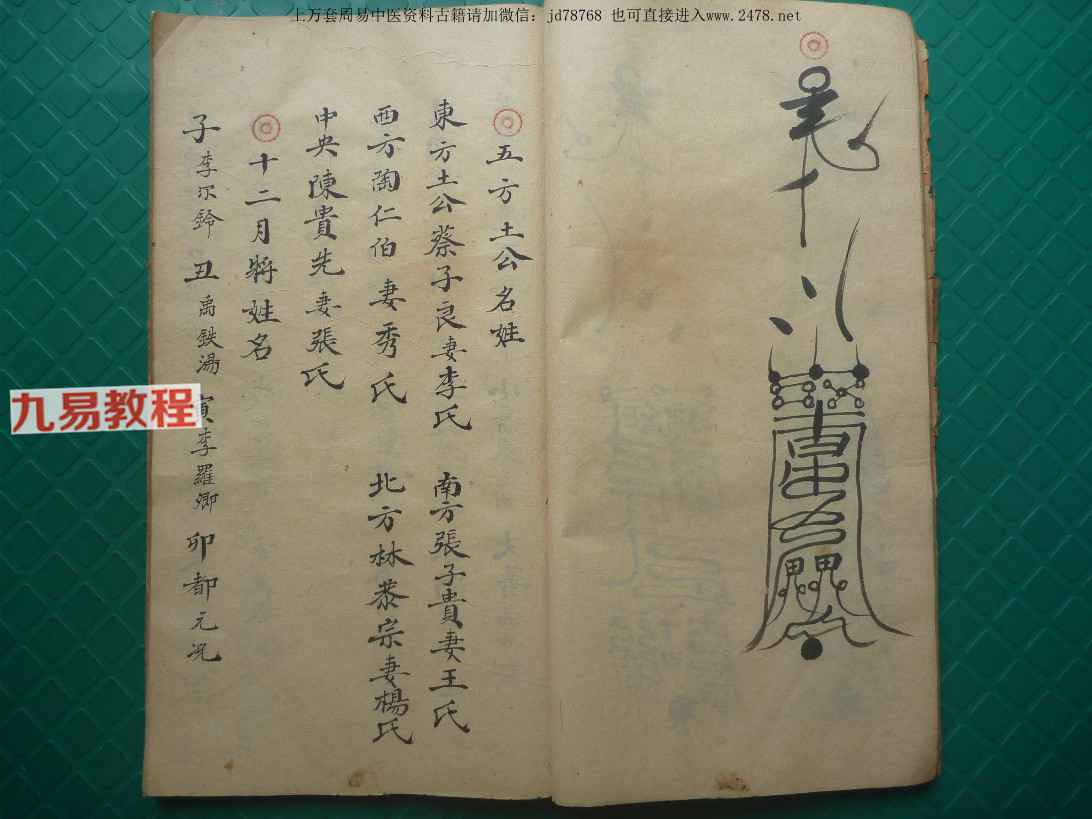 上万套周易中医资料古籍请加微信：jd78768 也可直接进入www.2478.net
五方土公名姓
東方土公蔡子良妻李氏 南方張子貴妻王氏
西方陶仁伯妻秀氏 北方林恭宗妻楊氏
中央陳貴先妻張氏
十二月將姓名
子李尔鈴 丑禹鉄湯 寅李羅卿 卯都元况
九易教程